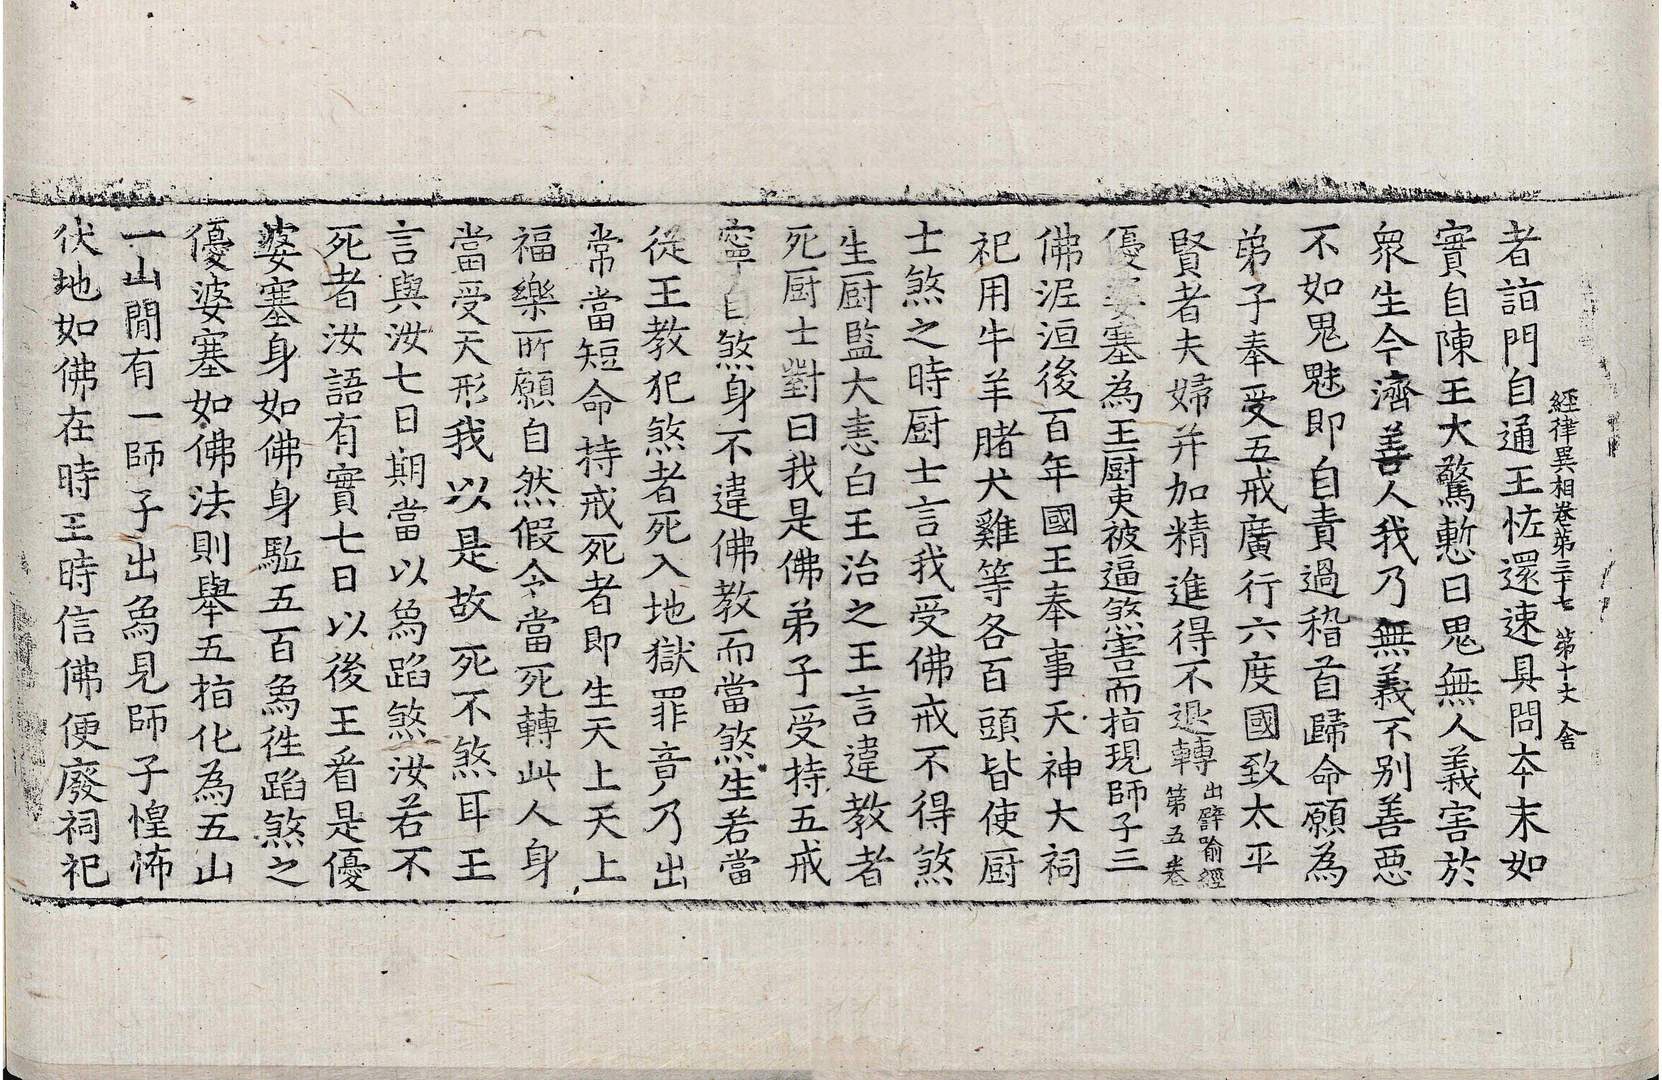 經律異相卷第三十七 第十六 舍
者詣門自通王怪還速具問本末如
實自陳王大驚慙曰鬼無人義害於
衆生今濟善人我乃無義不別善惡
不如鬼魅即自責過稽首歸命願為
弟子奉受五戒廣行六度國致太平
賢者夫婦并加精進得不退轉出譬喻經第五卷
優婆塞為王厨吏被逼煞害而指現師子三
佛泥洹後百年國王奉事天神大祠
祀用牛羊賭犬雞等各百頭皆使厨
士煞之時厨士言我受佛戒不得煞
生厨監大恚白王治之王言違教者
死厨士對曰我是佛弟子受持五戒
寧自煞身不違佛教而當煞生若當
從王教犯煞者死入地獄罪竟乃出
常當短命持戒死者即生天上天上
福樂所願自然假令當死轉此人身
當受天形我以是故死不煞耳王
言與汝七日期當以爲蹈煞汝若不
死者汝語有實七日以後王看是優
婆塞身如佛身駈五百爲徃蹈煞之
優婆塞如佛法則舉五指化為五山
一山間有一師子出爲見師子惶怖
伏地如佛在時王時信佛便廢祠祀